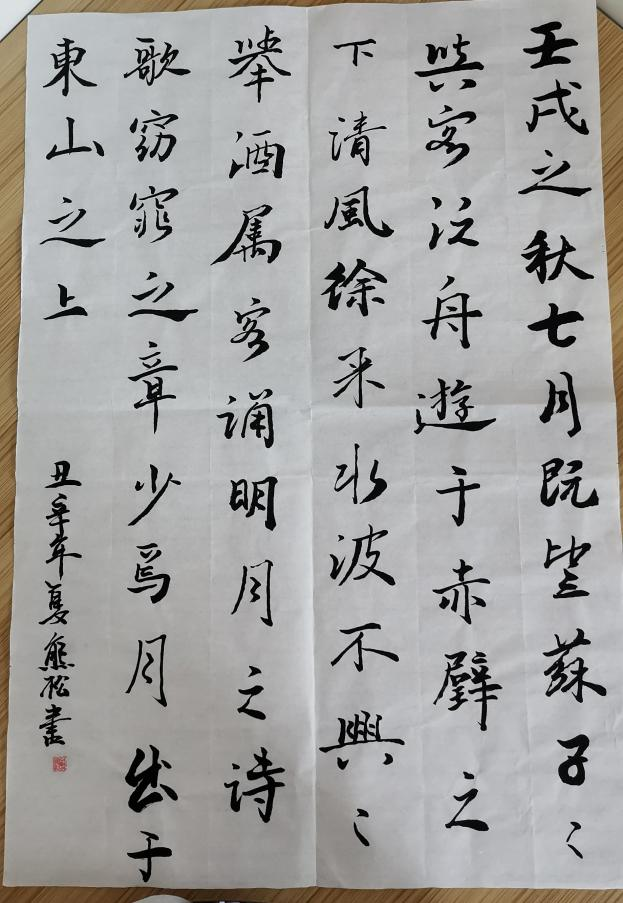 壬戌之秋七月既望蘇子〻
與客泛舟遊于赤壁之
下清風徐来水波不興〻
舉酒属客誦明月之詩
歌窈窕之章少焉月出于
東山之上
丑辛年夏熊松書